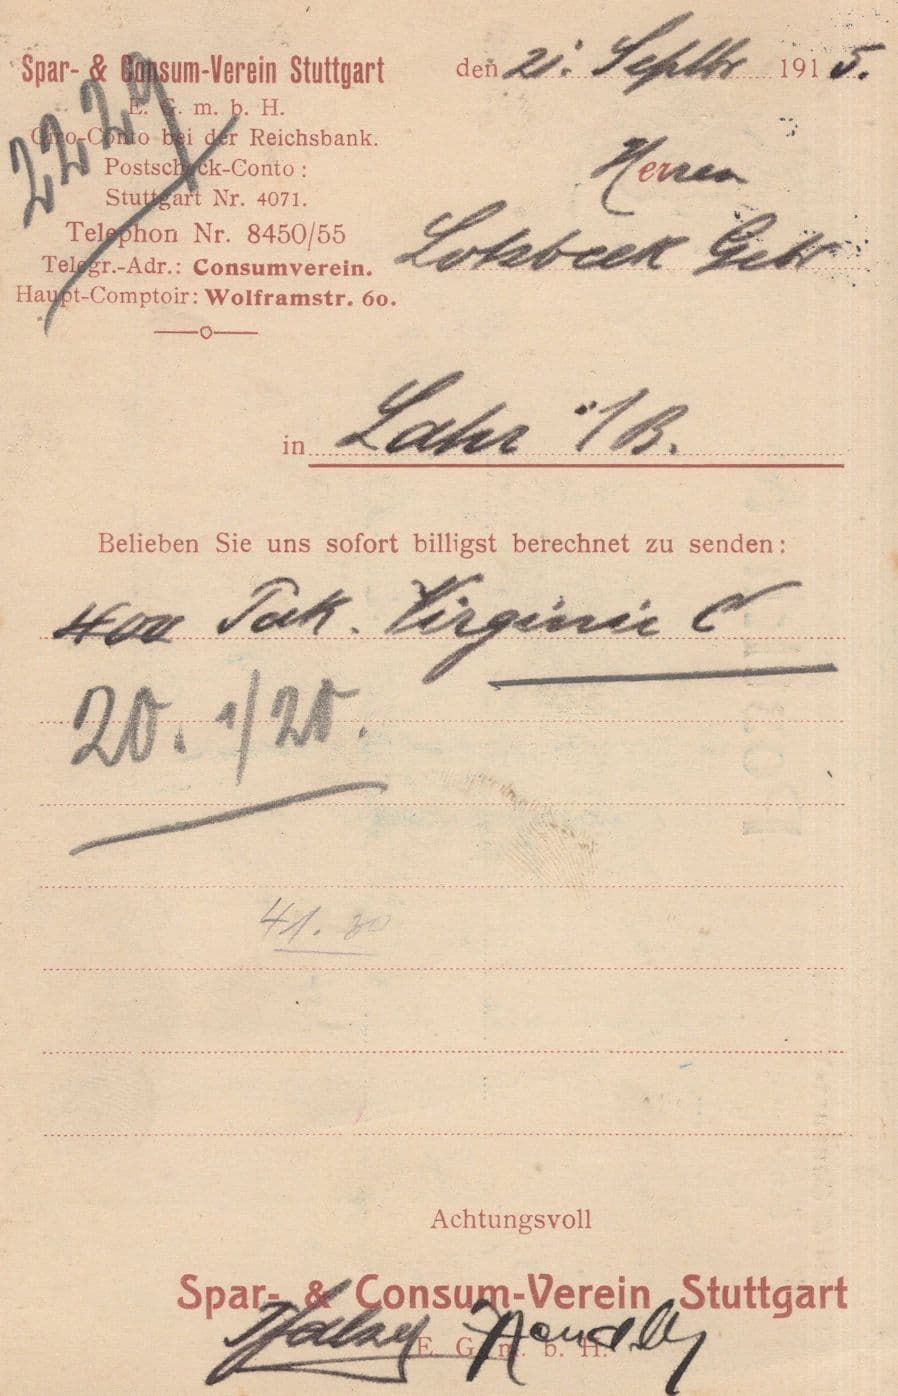 Spar- & Consum-Verein Stuttgart
E. G. m. b. H.
Giro-Conto bei der Reichsbank.
Postscheck-Conto:
Stuttgart Nr. 4071.
Telephon Nr. 8450/55
Telegr.-Adr.: Consumverein.
Haupt-Comptoir: Wolframstr. 60.
2229
den 21. Septbr 1915.
Herren
Lotzbeck Gebr
in Lahr i/B.
Belieben Sie uns sofort billigst berechnet zu senden:
400 Pak. Virginie C
20. 1/20.
41.
Achtungsvoll
Spar- & Consum-Verein Stuttgart
E. G. m. b. H.